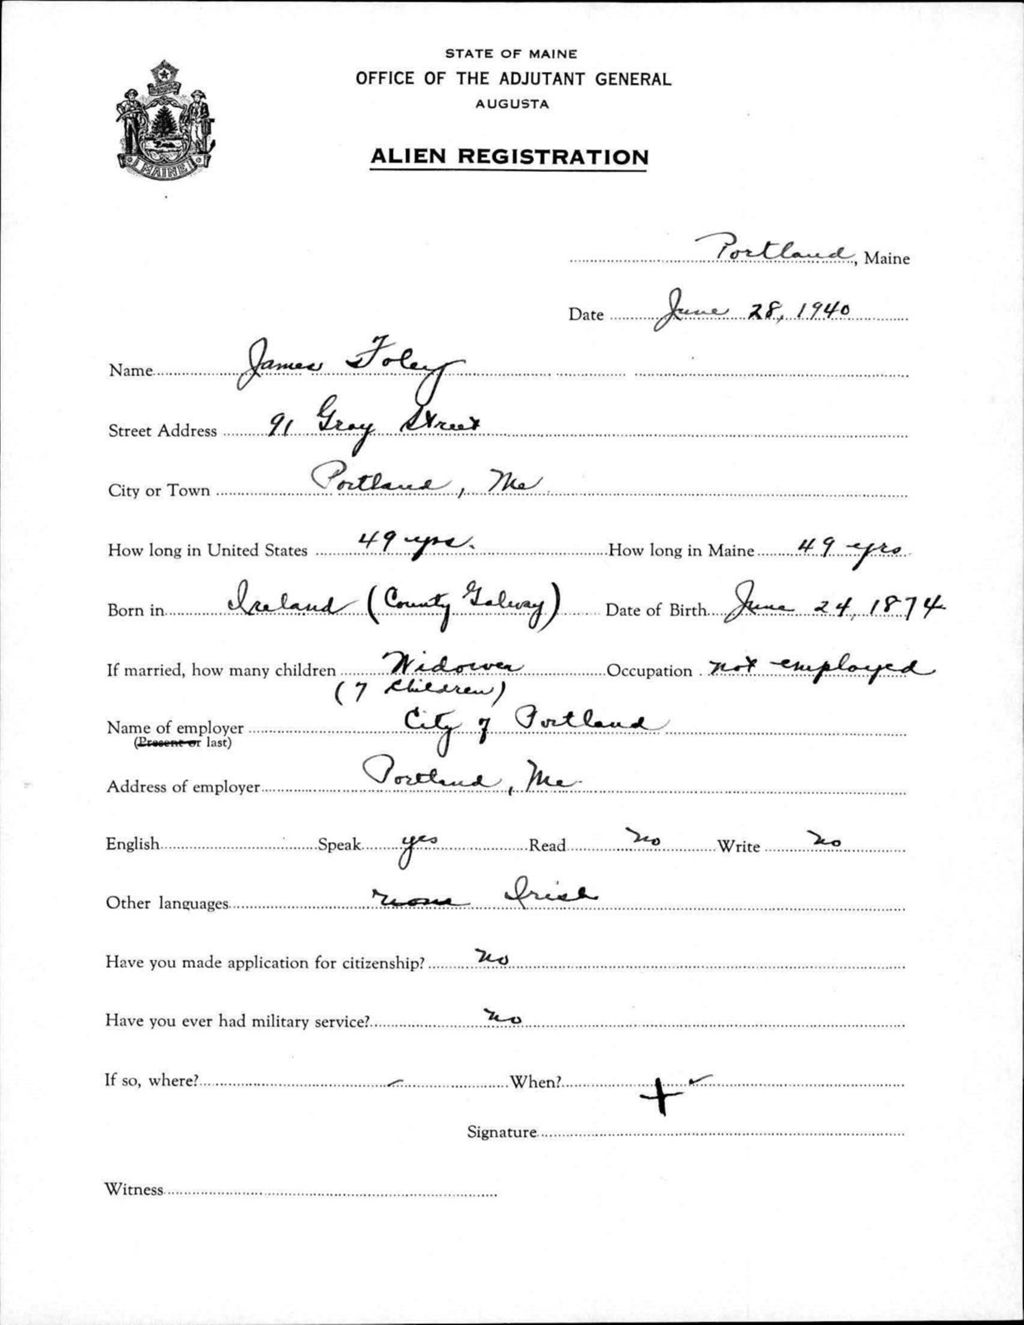 STATE OF MAINE
OFFICE OF THE ADJUTANT GENERAL
AUGUSTA
ALIEN REGISTRATION
MAINE
Portland, Maine
Date June 28, 1940
Name James Foley
Street Address 91 Gray Street
City or Town Portland, Me
How long in United States 49 yrs. How long in Maine 49 yrs
Born in Ireland (County Galway) Date of Birth June 24, 1874
If married, how many children Widower Occupation not employed
(7 children)
Name of employer City of Portland
(Present or last)
Address of employer Portland, Me.
English Speak yes Read no Write no
Other languages none Irish
Have you made application for citizenship? no
Have you ever had military service? no
If so, where? When?
+
Signature
Witness